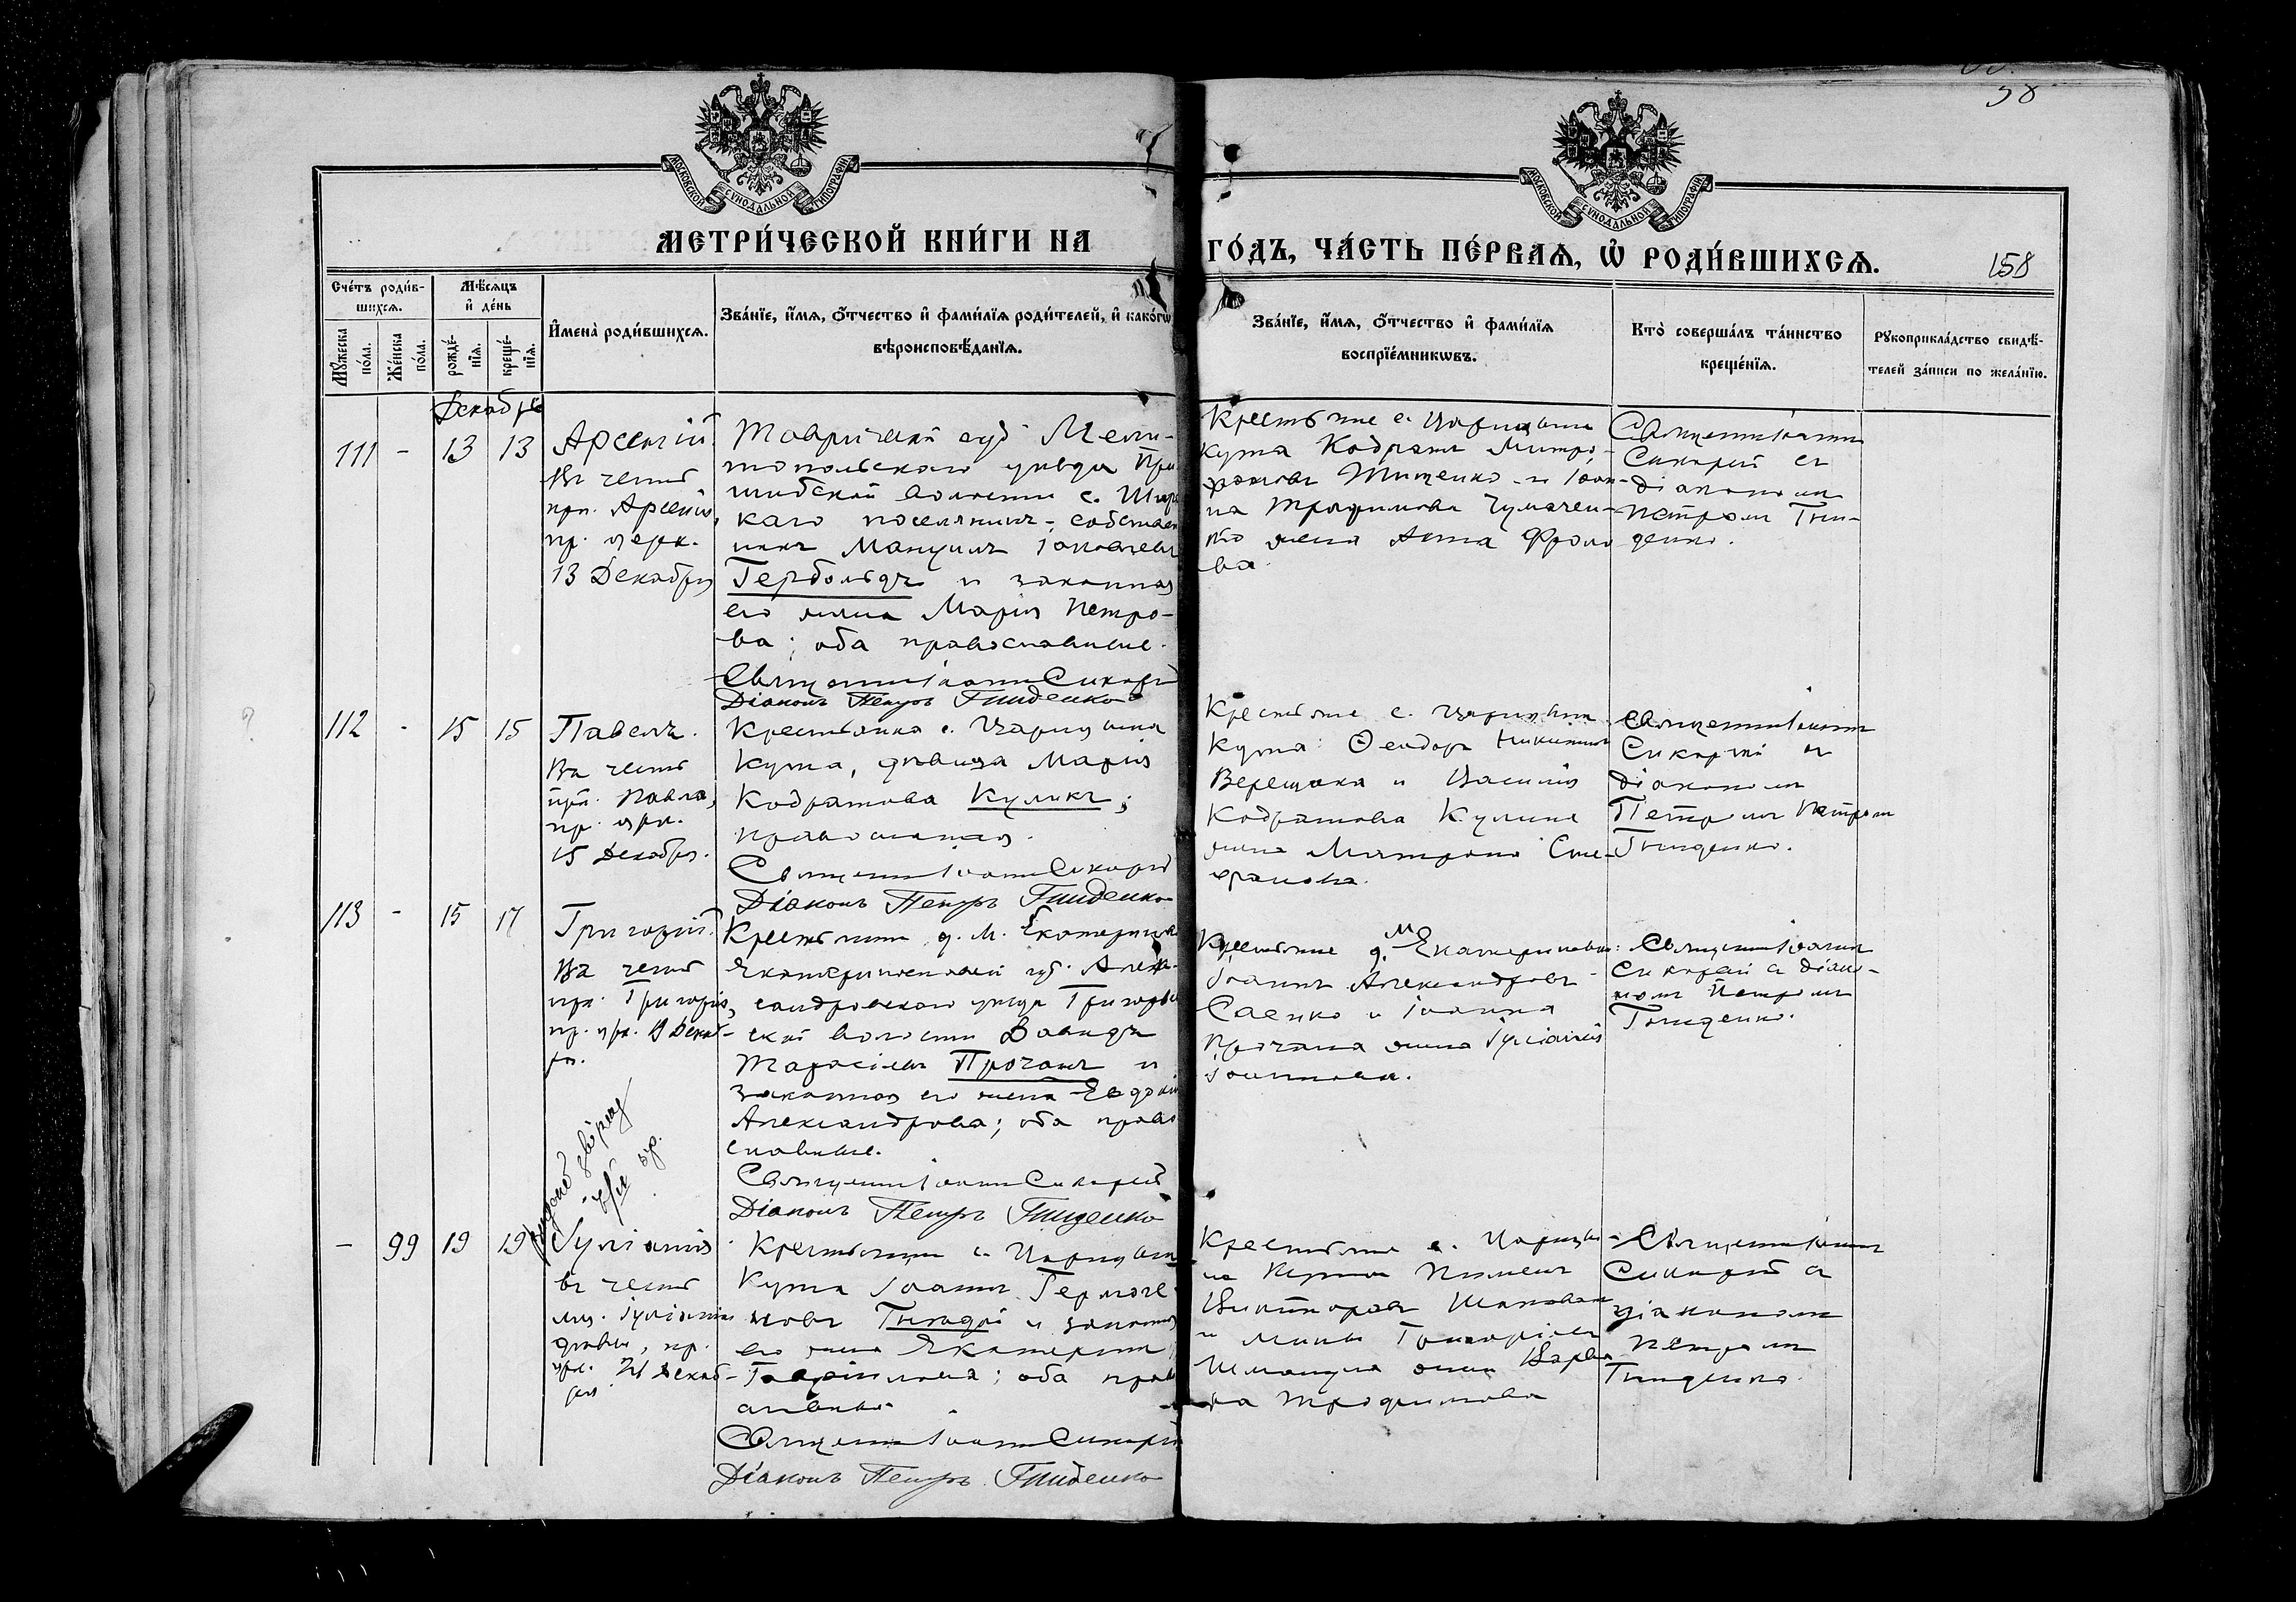 58
МОСКОВСКОЙ СѴНОДАЛЬНОЙ ТИПОГРАФІИ
МОСКОВСКОЙ СѴНОДАЛЬНОЙ ТИПОГРАФІИ
МЕТРИ́ЧЕСКОЙ КНИ́ГИ НА
ГО́ДЪ, ЧА́СТЬ ПЕ́РВАѦ, Ѡ҆ РОДИ́ВШИХСѦ.
158
Сче́тъ роди́в-
шихсѧ.
Мꙋжеска по́ла.
Же́нска по́ла.
Мѣ́сѧцъ
и҆ де́нь
рожде́-
нїѧ.
креще́-
нїѧ.
И҆мена̀ роди́вшихсѧ.
Зва́нїе, и҆́мѧ, о҆́тчество и҆ фами́лїѧ роди́телей, и҆ како́гѡ
вѣроисповѣ́данїѧ.
Зва́нїе, и҆́мѧ, о҆́тчество и҆ фами́лїѧ
воспрїе́мникѡвъ.
Кто̀ соверша́лъ та́инство
креще́нїѧ.
Рꙋкоприкла́дство свидѣ́-
телей за́писи по жела́нїю.
Декабрь
111 - 13 13
Арсеній.
Въ честь
прп. Арсенія,
пр. церк.
13 Декабря
Таврической губ. Мели-
топольскаго уѣзда При
шибской волости с.
каго поселянинъ-собствен
никъ Мануилъ Іаковлевъ
Гербольдъ и законная
его жена Марія Петро-
ва; оба православные.
Священникъ Іоаннъ Сикорскій
Діаконъ Петръ Гниденко
Крестьяне с. Царицына
кута Кодратъ Митро-
фановъ Тищенко и Іоан-
на Трофимова Чумачен-
ко жена Анна Фроло
ва.
Священникъ Іоаннъ
Сикорскій съ
діакономъ
Петромъ Гни-
денко.
112 - 15 15
Павелъ.
Въ честь
прп. Павла,
пр. црк.
15 Декабря.
Крестьянка с. Царицына
Кута, дѣвица Марія
Кодратова Куликъ;
православная.
Священникъ Іоаннъ Сикорскій
Діаконъ Петръ Гниденко
Крестьяне с. Царицына
Кута: Ѳеодоръ Никитинъ
Верещака и Василія
Кодратова Кулика
жена Матрона Сте-
фанова.
Священникъ Іоаннъ
Сикорскій съ
діакономъ
Петромъ Петромъ
Гниденко.
113 - 15 17
Григорій.
Въ честь
прп. Григорія,
пр. црк. 19 Декаб-
ря.
Крестьянинъ д. М. Екатериновки
Екатеринославской губ. Алек-
сандровскаго уѣзда Григорьев
ской волости Давидъ
Тарасіевъ Прочанъ и
законная его жена Евдокія
Александрова; оба право
славные.
Священникъ Іоаннъ Сикорскій
Діаконъ Петръ Гниденко
Крестьяне д. М. Екатериновки:
Іоаннъ Александровъ
Саенко и Іоанна
Прочана жена Іуліанія
Іоаннова.
Священникъ Іоаннъ
Сикорскій съ діако-
номъ Петромъ
Гниденко.
- 99 19 19
Іуліанія
въ честь
мц. Іуліаніи
дѣвы, пр.
црк. 21 Декаб-
ря
Крестьянинъ с. Царицына
Кута Іоаннъ Гермоге-
новъ и законная
его жена Екатерина
Гавріилова; оба право
славные.
Священникъ Іоаннъ Сикорскій
Діаконъ Петръ Гниденко
Крестьяне с. Царицы-
на Кута Пименъ
Викторовъ Шаповал
и Григоріева
жена Варва
ра Трофимова
Священникъ Іоаннъ
Сикорскій съ
діакономъ
Петромъ
Гниденко.